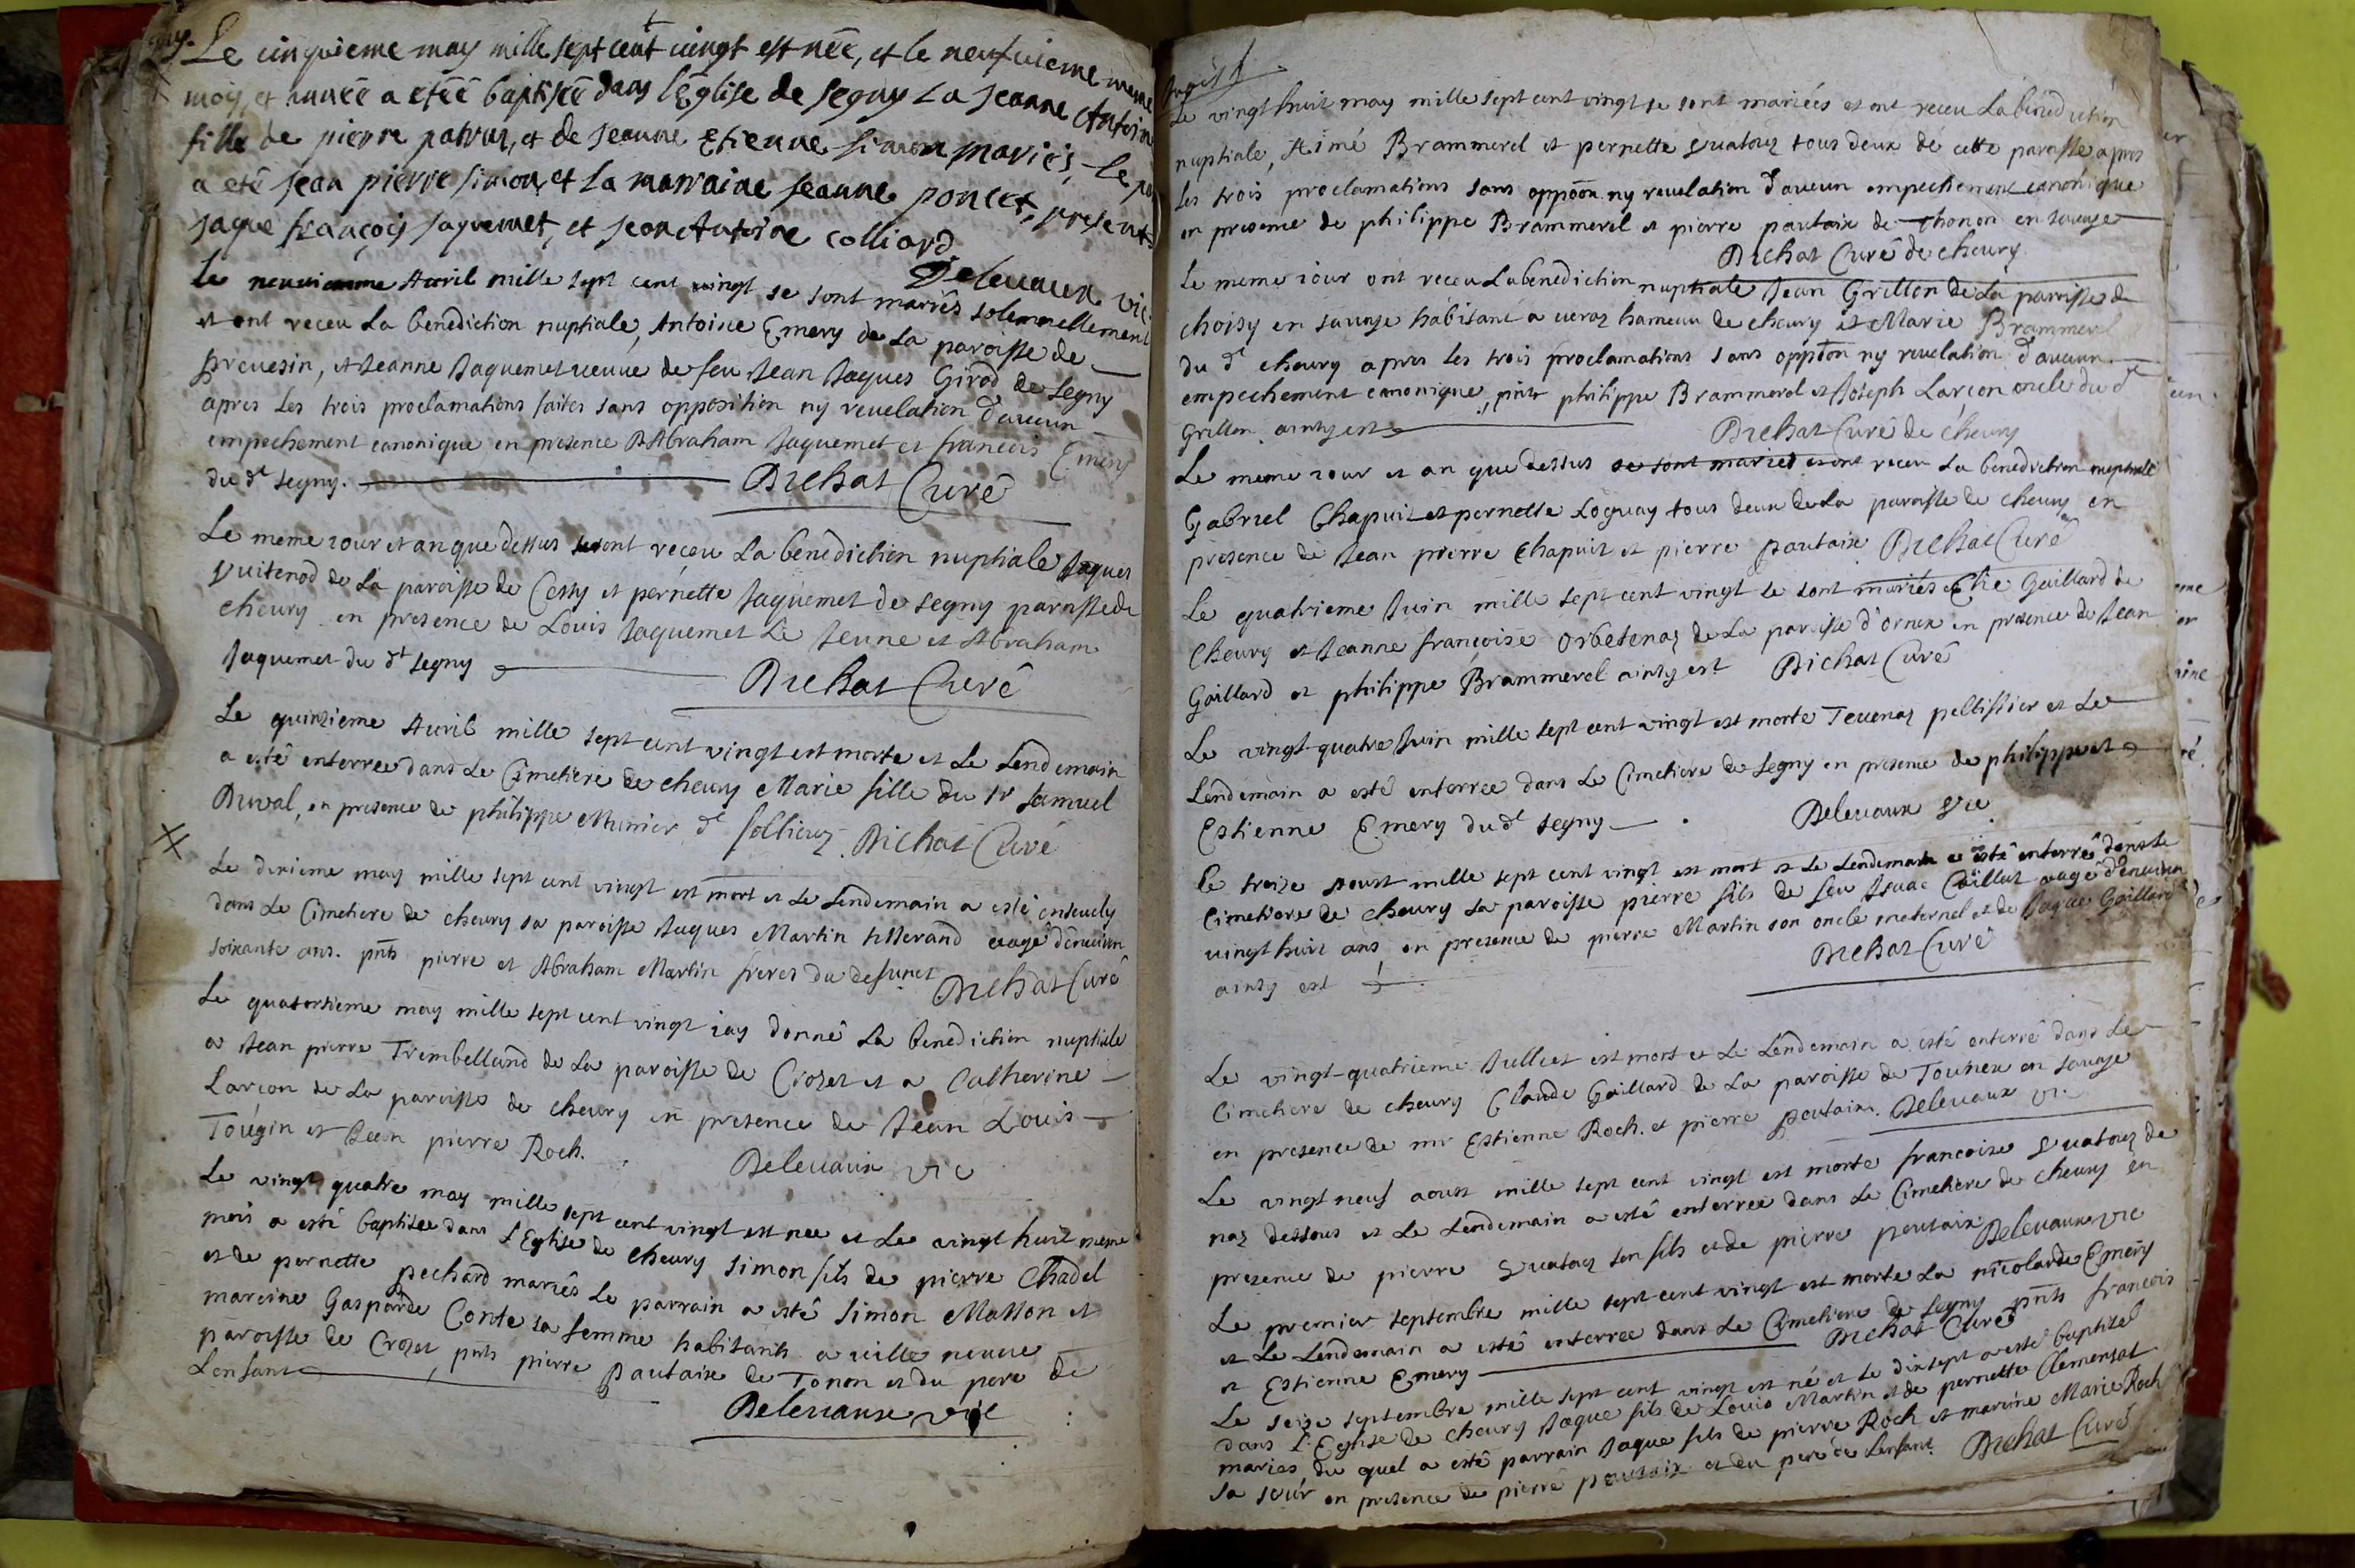 Le cinquieme may mille sept cent vingt est née, et le neufuieme meme
mois, et année a etéé baptiséé dans l'Eglise de segny La jeanne Antoin
fille de pierre et de jeanne Etienne simon mariés, Le
a eté jean pierre simon, et la marraine jeanne poncet, presents
jaque françois jaquemet, et jean Antoine colliard
Deleuaux vic
Le neuuiemme Auril mille sept cent vingt se sont mariés solemnellement
et ont receu La benediction nuptiale, Antoine Emery de La paroisse de
preuesin, et Jeanne Jaquemet ueuue de feu Jean Jaques Girod de segny
apres Les trois proclamations faites sans opposition ny reuelation d'aucun
empechement canonique en presence d'Abraham Jaquemet et francois Emery
du dt segny. Bichat Curé
Le meme iour et an que dessus ont receu La benediction nuptiale Jaques
vuitenod de La paroisse de Cessy et pernette Jaquemet de segny paroisse de
cheury en presence de Louis Jaquemet Le Jeune et Abraham
Jaquemet du dt segny
Bichat Curé
Le quinzieme Auril mille sept cent vingt est morte et Le Lendemain
a esté enterree dans Le Cimetiere de cheury Marie fille du sr samuel
Duual, en presence de philippe Munier dt Bichat Curé
Le dixieme may mille sept cent vingt est mort et Le Lendemain a esté enseuely
dans Le Cimetiere de cheury sa paroisse Jaques Martin aagé d'enuiron
soixante ans. pnts pierre et Abraham Martin freres du defunct Bichat Curé
Le quatorsieme may mille sept cent vingt iay donné La benediction nuptiale
a Jean pierre Trembelland de La paroisse de Crozet et a Catherine
Larcon de La paroisse de cheury en presence de Jean Louis
Tougin et Jean pierre Roch. Deleuaux vic
Le vingt quatre may mille sept cent vingt est nee et Le vingt huit meme
mois a esté baptisee dans l'Eglise de cheury simon fils de pierre Chadel
et de pernette pechard mariés Le parrain a esté simon Masson et
mareine Gasparde Conte sa femme habitants a uille neuue
paroisse de Crozet, pnts pierre pautaix de Tonon et du pere de
Lenfant
Deleuaux vic
Le vingt huit may mille sept cent vingt se sont mariées et ont receu La benediction
nuptiale, Aimé Brammerel et pernette vuatouz tous deux de cette paroisse apres
Les trois proclamations sans oppoõn ny reuelation d'aucun empechement canonique
en presence de philippe Brammerel et pierre pautaix de Thonon en sauoye
Bichat Curé de cheury
Le meme iour ont receu La benediction nuptiale Jean Grillon de La parroisse de
choisy en sauoye habitant a ueraz hameau de cheury et Marie Brammerel
du dt cheury apres Les trois proclamations sans oppõon ny reuelation d'aucun
empechement canonique, pnts philippe Brammerel et Joseph Larcon oncle du dt
Grillon ainsy est Bichat Curé de cheury
Le meme iour et an que dessus se sont mariés et ont receu La benediction nuptiale
Gabriel Chapuit et pernette Loguay tous deux de La paroisse de cheury en
presence de Jean pierre Chapuit et pierre pautaix Bichat Curé
Le quatrieme Juin mille sept cent vingt se sont mariés Elie Gaillard de
cheury et Jeanne francoise orbetenaz de La paroisse d'ornex en presence de Jean
Gaillard et philippe Brammerel ainsy est Bichat Curé
Le vingt-quatre Juin mille sept cent vingt est morte Teuenaz pellissier et Le
Lendemain a esté enterree dans Le Cimetiere de segny en presence de philippe et
Estienne Emery du dt segny Deleuaux vic
Le treize Aoust mille sept cent vingt est mort et Le Lendemain a esté enterré dans Le
Cimetiere de cheury sa paroisse pierre fils de feu Isaac Caillat aagé d'enuiron
uingt huit ans en presence de pierre Martin son oncle maternel et de Jaque Gaillard
ainsy est Bichat Curé
Le vingt-quatrieme Juillet est mort et Le Lendemain a esté enterré dans Le
Cimetiere de cheury Claude Gaillard de La paroisse de Tounex en sauoye
en presence de mr Estienne Roch. et pierre pautaix. Deleuaux vic
Le vingt neuf aoust mille sept cent vingt est morte francoise vuatouz de
naz dessous et Le Lendemain a esté enterree dans Le Cimetiere de cheury en
presence de pierre vuatouz son fils et de pierre pautaix Deleuaux vic
Le premier septembre mille sept cent vingt est morte La nicolarde Emery
et Le Lendemain a esté enterree dans Le Cimetiere de segny pnts francois
et Estienne Emery Bichat Curé
Le seize septembre mille sept cent vingt est né et Le dixsept a esté baptisé
dans l'Eglise de cheury Jaque fils de Louis Martin et de pernette Clemensat
maries du quel a esté parrain Jaque fils de pierre Roch et mareine Marie Roch
sa seur en presence de pierre pautaix et du pere de Lenfant. Bichat Curé